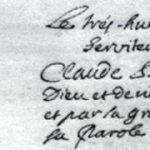 Le trés-hu
Serviteu
Claude B
Dieu et de n
et par la gr
sa Parole